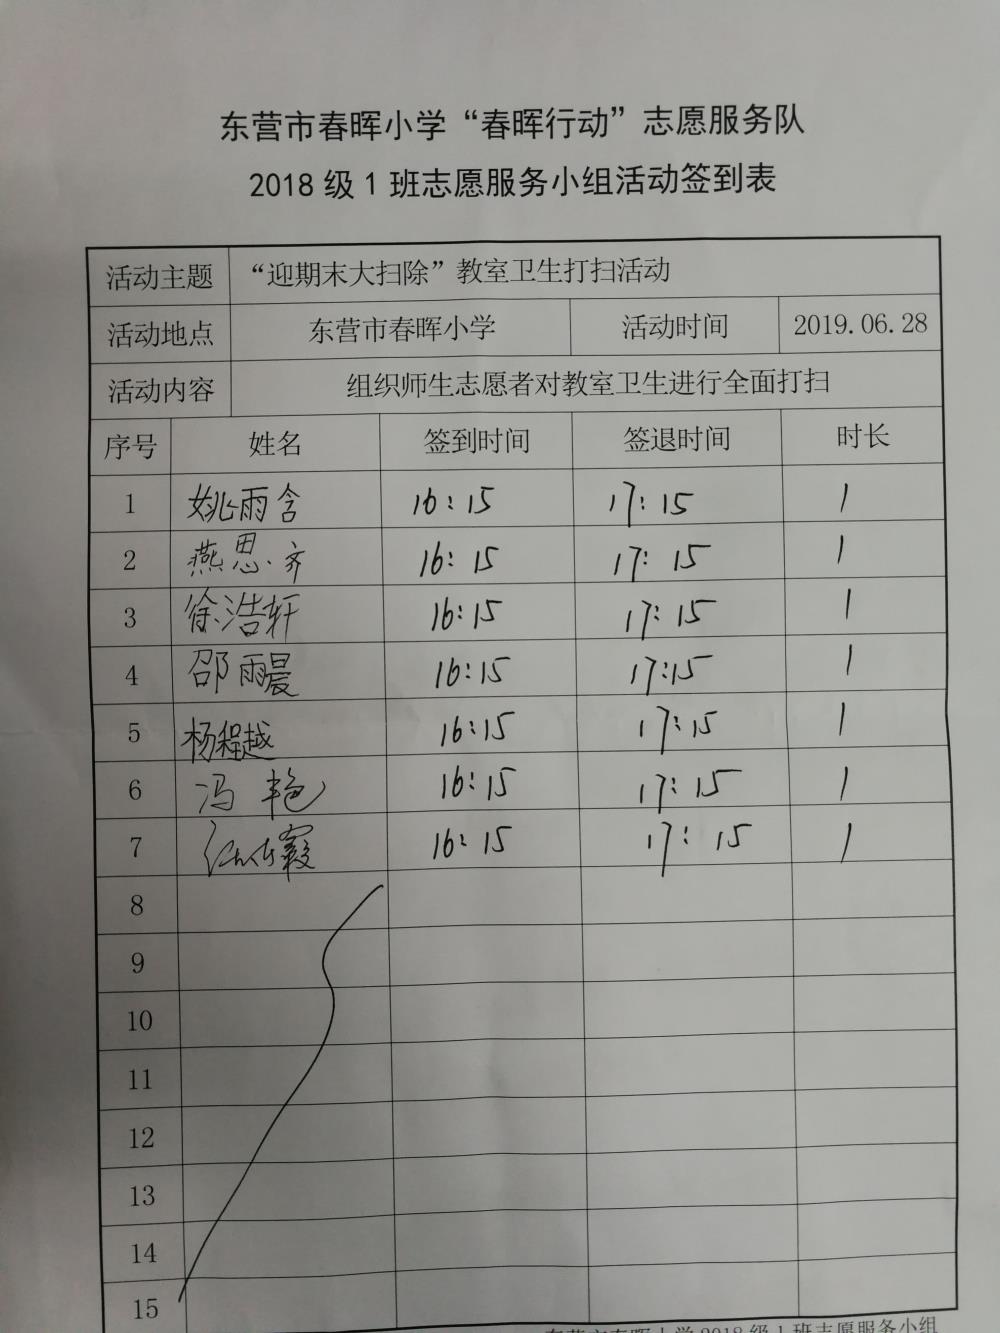 东营市春晖小学“春晖行动”志愿服务队
2018 级 1 班志愿服务小组活动签到表
活动主题 “迎期末大扫除”教室卫生打扫活动
活动地点 东营市春晖小学 活动时间 2019.06.28
活动内容 组织师生志愿者对教室卫生进行全面打扫
序号 姓名 签到时间 签退时间 时长
1 姚雨含 16:15 17:15 1
2 燕思齐 16:15 17:15 1
3 徐浩轩 16:15 17:15 1
4 邵雨晨 16:15 17:15 1
5 杨程越 16:15 17:15 1
6 冯艳 16:15 17:15 1
7 16:15 17:15 1
8
9
10
11
12
13
14
15
东营市春晖小学 2018 级 1 班志愿服务小组